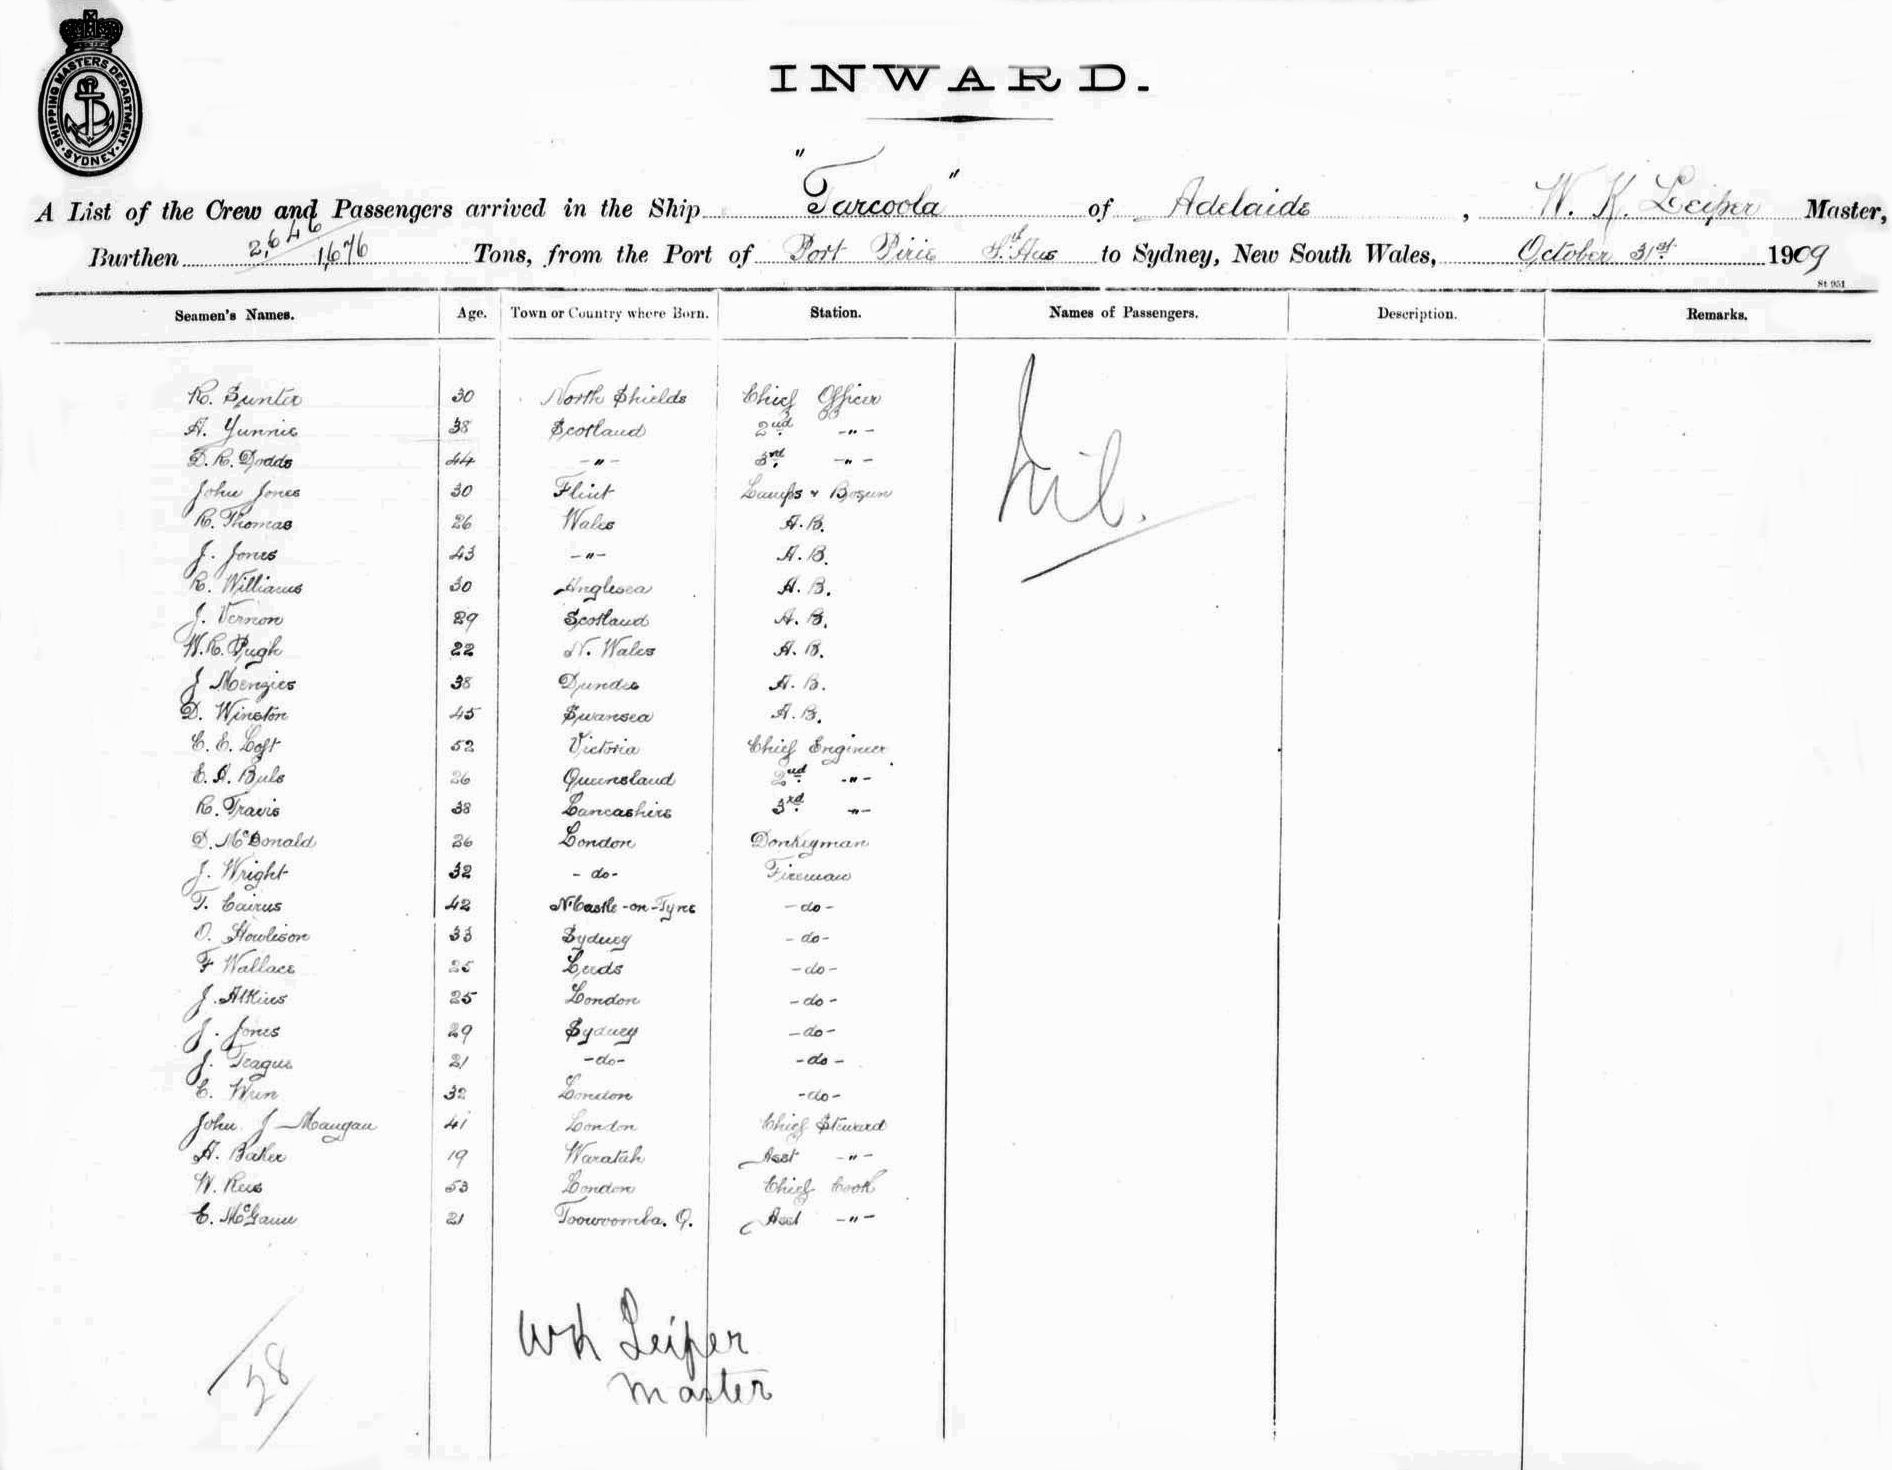 SHIPPING MASTERS DEPARTMENT · SYDNEY ·
INWARD.
A List of the Crew and Passengers arrived in the Ship "Tarcoola" of Adelaide, W. K. Leiper Master,
Burthen 2,646 1,676 Tons, from the Port of Port Pirie Sth Aus to Sydney, New South Wales, October 31st 1909
St 951
Seamen's Names. Age. Town or Country where Born. Station. Names of Passengers. Description. Remarks.
R. Sunter 30 North Shields Chief Officer
A. Yunnie 38 Scotland 2nd -"-
D. R. Dodds 44 -"- 3rd -"-
John Jones 30 Flint Lamps & Bosun
nil.
R. Thomas 26 Wales A.B.
J. Jones 43 -"- A.B.
R. Williams 30 Anglesea A.B.
J. Vernon 29 Scotland A.B.
W. R. Pugh 22 N. Wales A.B.
J Menzies 38 Dundee A.B.
D. Winston 45 Swansea A.B.
C. E. Loft 52 Victoria Chief Engineer
E. A. Buls 26 Queensland 2nd -"-
R. Travis 38 Lancashire 3rd -"-
D. McDonald 26 London Donkeyman
J. Wright 32 -do- Fireman
T. Cairus 42 N'Castle-on-Tyne -do-
O. Howlison 33 Sydney -do-
F Wallace 25 Leeds -do-
J. Atkins 25 London -do-
J. Jones 29 Sydney -do-
J. Teague 21 -do- -do-
C. Wren 32 London -do-
John J Mangan 41 London Chief Steward
A. Baker 19 Waratah Asst -"-
W. Rees 53 London Chief Cook
E. McGann 21 Toowoomba. Q. Asst -"-
28
WK Leiper
Master